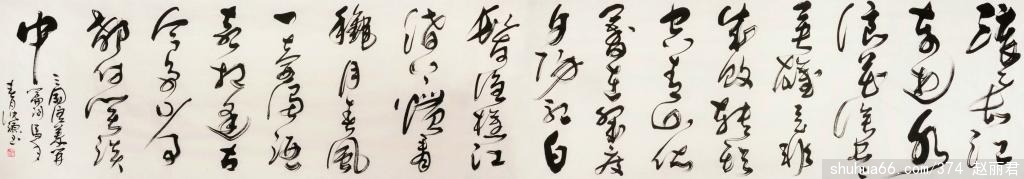 滚滚长江
东逝水
浪花淘尽
英雄是非
成败转头
空青山依
旧在几度
夕阳红白
发渔樵江
渚上惯看
秋月春风
一壶浊酒
喜相逢古
今多少事
都付笑谈
中
三国演义开
篇词
shuhua66.com/374 赵丽君